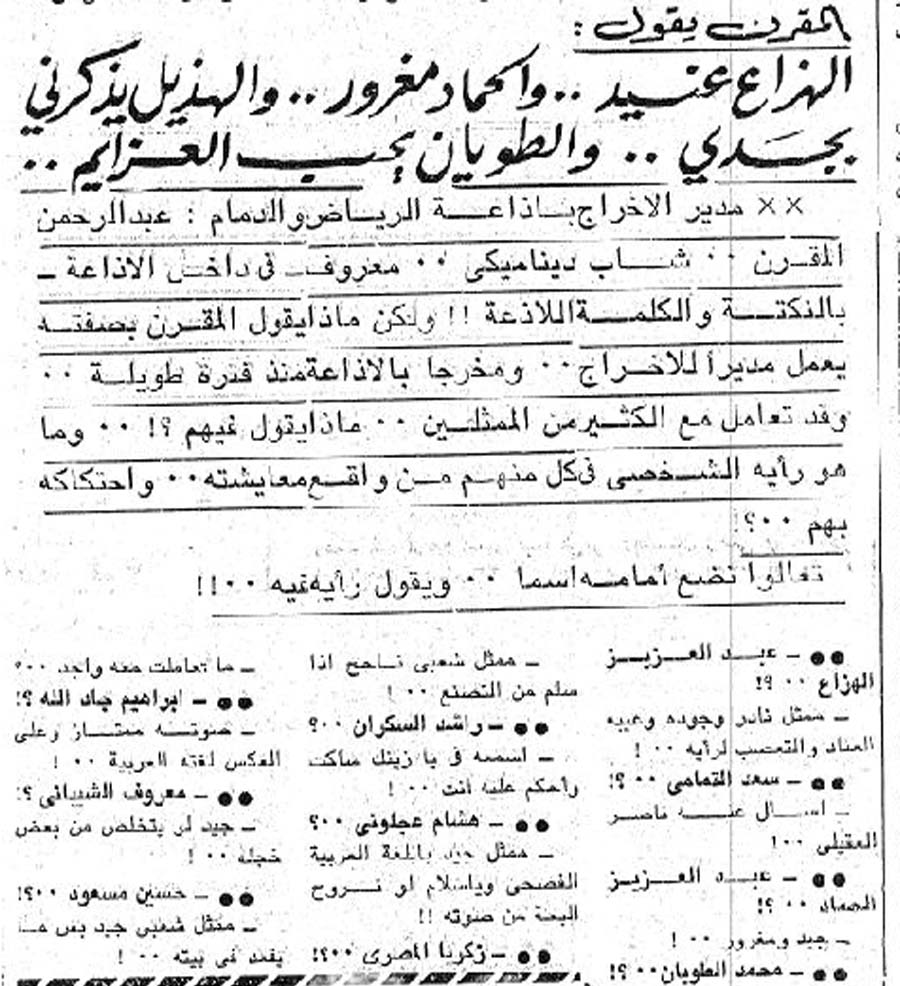 المقرن يقول :
الهزاع عنيد .. والحماد مغرور .. والهذيل يذكرني
بجدي .. والطويان يحب العزايم ..
×× مدير الاخراج باذاعة الرياض والدمام : عبدالرحمن
المقرن ٠٠ شاب ديناميكى ٠٠ معروف فى داخل الاذاعة ـ
بالنكتة والكلمة اللاذعة !! ولكن ماذا يقول المقرن بصفته
يعمل مديرا للاخراج ٠٠ ومخرجا بالاذاعة منذ فترة طويلة ٠٠
وقد تعامل مع الكثير من الممثلين ٠٠ ماذا يقول فيهم ؟! ٠٠ وما
هو رأيه الشخصى فى كل منهم من واقع معايشته ٠٠ واحتكاكه
بهم ٠٠؟!
تعالوا نضع أمامه اسما ٠٠ ويقول رأيه فيه ٠٠!!
●● ـ عبد العزيز
الهزاع ٠٠ ؟!
ـ ممثل نادر وجوده وعيبه
العناد والتعصب لرأيه ٠٠ !
●● ـ سعد التمامى ٠٠ ؟!
ـ اسال عنه ناصر
العقيلى ٠٠ !
●● ـ عبد العزيز
الحماد ٠٠ ؟!
ـ جيد ومغرور ٠٠ !
●● ـ محمد الطويان ٠٠ ؟!
ـ ممثل شعبى ناجح اذا
سلم من التصنع ٠٠ !
●● ـ راشد السكران ٠٠؟
ـ اسمعه فى يا زينك ساكت
وأحكم عليه انت ٠٠ !
●● ـ هشام عجلونى ٠٠؟
ـ ممثل جيد باللغة العربية
الفصحى وياسلام لو تروح
البحة من صوته !!
●● ـ زكريا المصرى ٠٠؟!
ـ ما تعاملت معه واجد ٠٠؟
●● ـ ابراهيم جاد الله ؟!
ـ صوته ممتاز وعلى
العكس لغته العربية ٠٠ !
●● ـ معروف الشيبانى ؟!
ـ جيد لو يتخلص من بعض
خجله ٠٠ !
●● ـ حسين مسعود ٠٠؟!
ـ ممثل شعبى جيد بس ما
يقعد فى بيته ٠٠ !